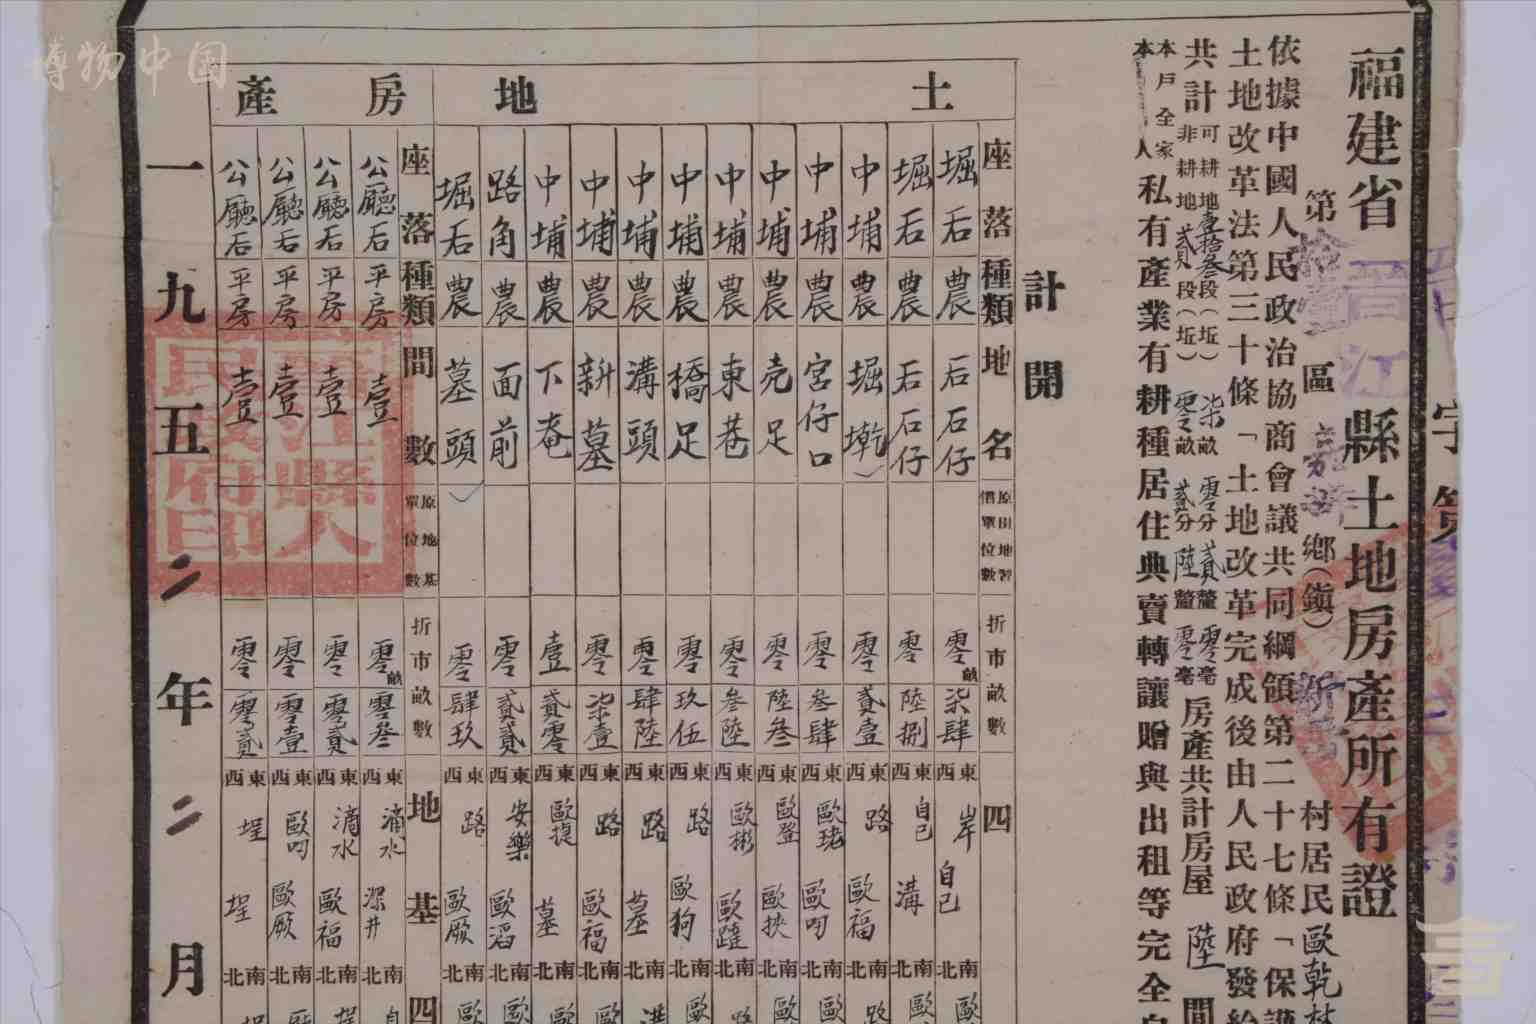 博物中国
字第
福建省晉江縣土地房產所有證
第 區 鄉(鎮) 村居民歐乾
依據中國人民政治協商會議共同綱領第二十七條「保護
土地改革法第三十條「土地改革完成後由人民政府發給
共計可耕地壹拾叁段(坵)柒畝零分貳釐零毫
非耕地貳段(坵)零畝貳分陸釐零毫
房產共計房屋陸間
本戶全家
本 人
私有產業有耕種居住典賣轉讓贈與出租等完全自
計開
土地
座落 種類 地名 折市畝數 四
堀石 農 石石仔 零畝 柒肆 東 岸 西 自己 南北
堀石 農 石石仔 零 陸捌 東西 自己 溝 南北
中埔 農 堀墘 零 貳壹 東西 路 歐福 南北
中埔 農 宮仔口 零 叁肆 東西 歐珯 歐叨 南北
中埔 農 売足 零 陸叁 東西 歐登 歐挾 南北
中埔 農 東巷 零 叁陸 東西 歐彬 歐躂 南北
中埔 農 橋足 零 玖伍 東西 路 歐狗 南北
中埔 農 溝頭 零 肆陸 東西 路 墓 南北
中埔 農 新墓 零 柒壹 東西 路 歐福 南北
中埔 農 下庵 壹 貳零 東西 歐提 墓 南北
路角 農 面前 零 貳貳 東西 安樂 歐滔 南北
堀石 農 墓頭 零 肆玖 東西 路 歐厰 南北
房產
座落 種類 間數 原地基單位數 折市畝數 地基四
公廳石 平房 壹 零畝 零叁 東西 滴水 深井 南北
公廳石 平房 壹 零 零貳 東西 滴水 歐福 南北
公廳石 平房 壹 零 零壹 東西 歐叨 歐厰 南北
公廳石 平房 壹 零 零貳 東西 埕 埕 南北
一九五二年二月
晉江縣人民政府印